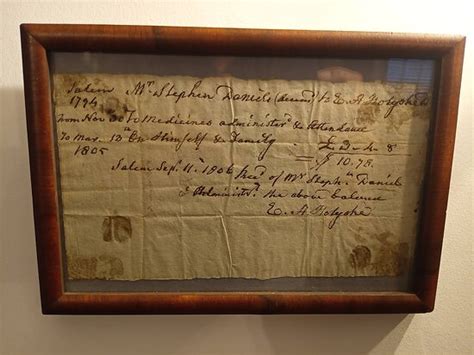 Salem Mr Stephen Daniels (deceasd) to E. A. Holyoke Dr
1794
from Nov 30 To Medicines administerd & Attendance
To Mar. 13th on Himself & Family £ 3 - 4 - 8
1805 = $ 10.78.
Salem Sepr. 11th 1806 Recd of Mr Stephn Daniel
Administr the above balance
E. A Holyoke